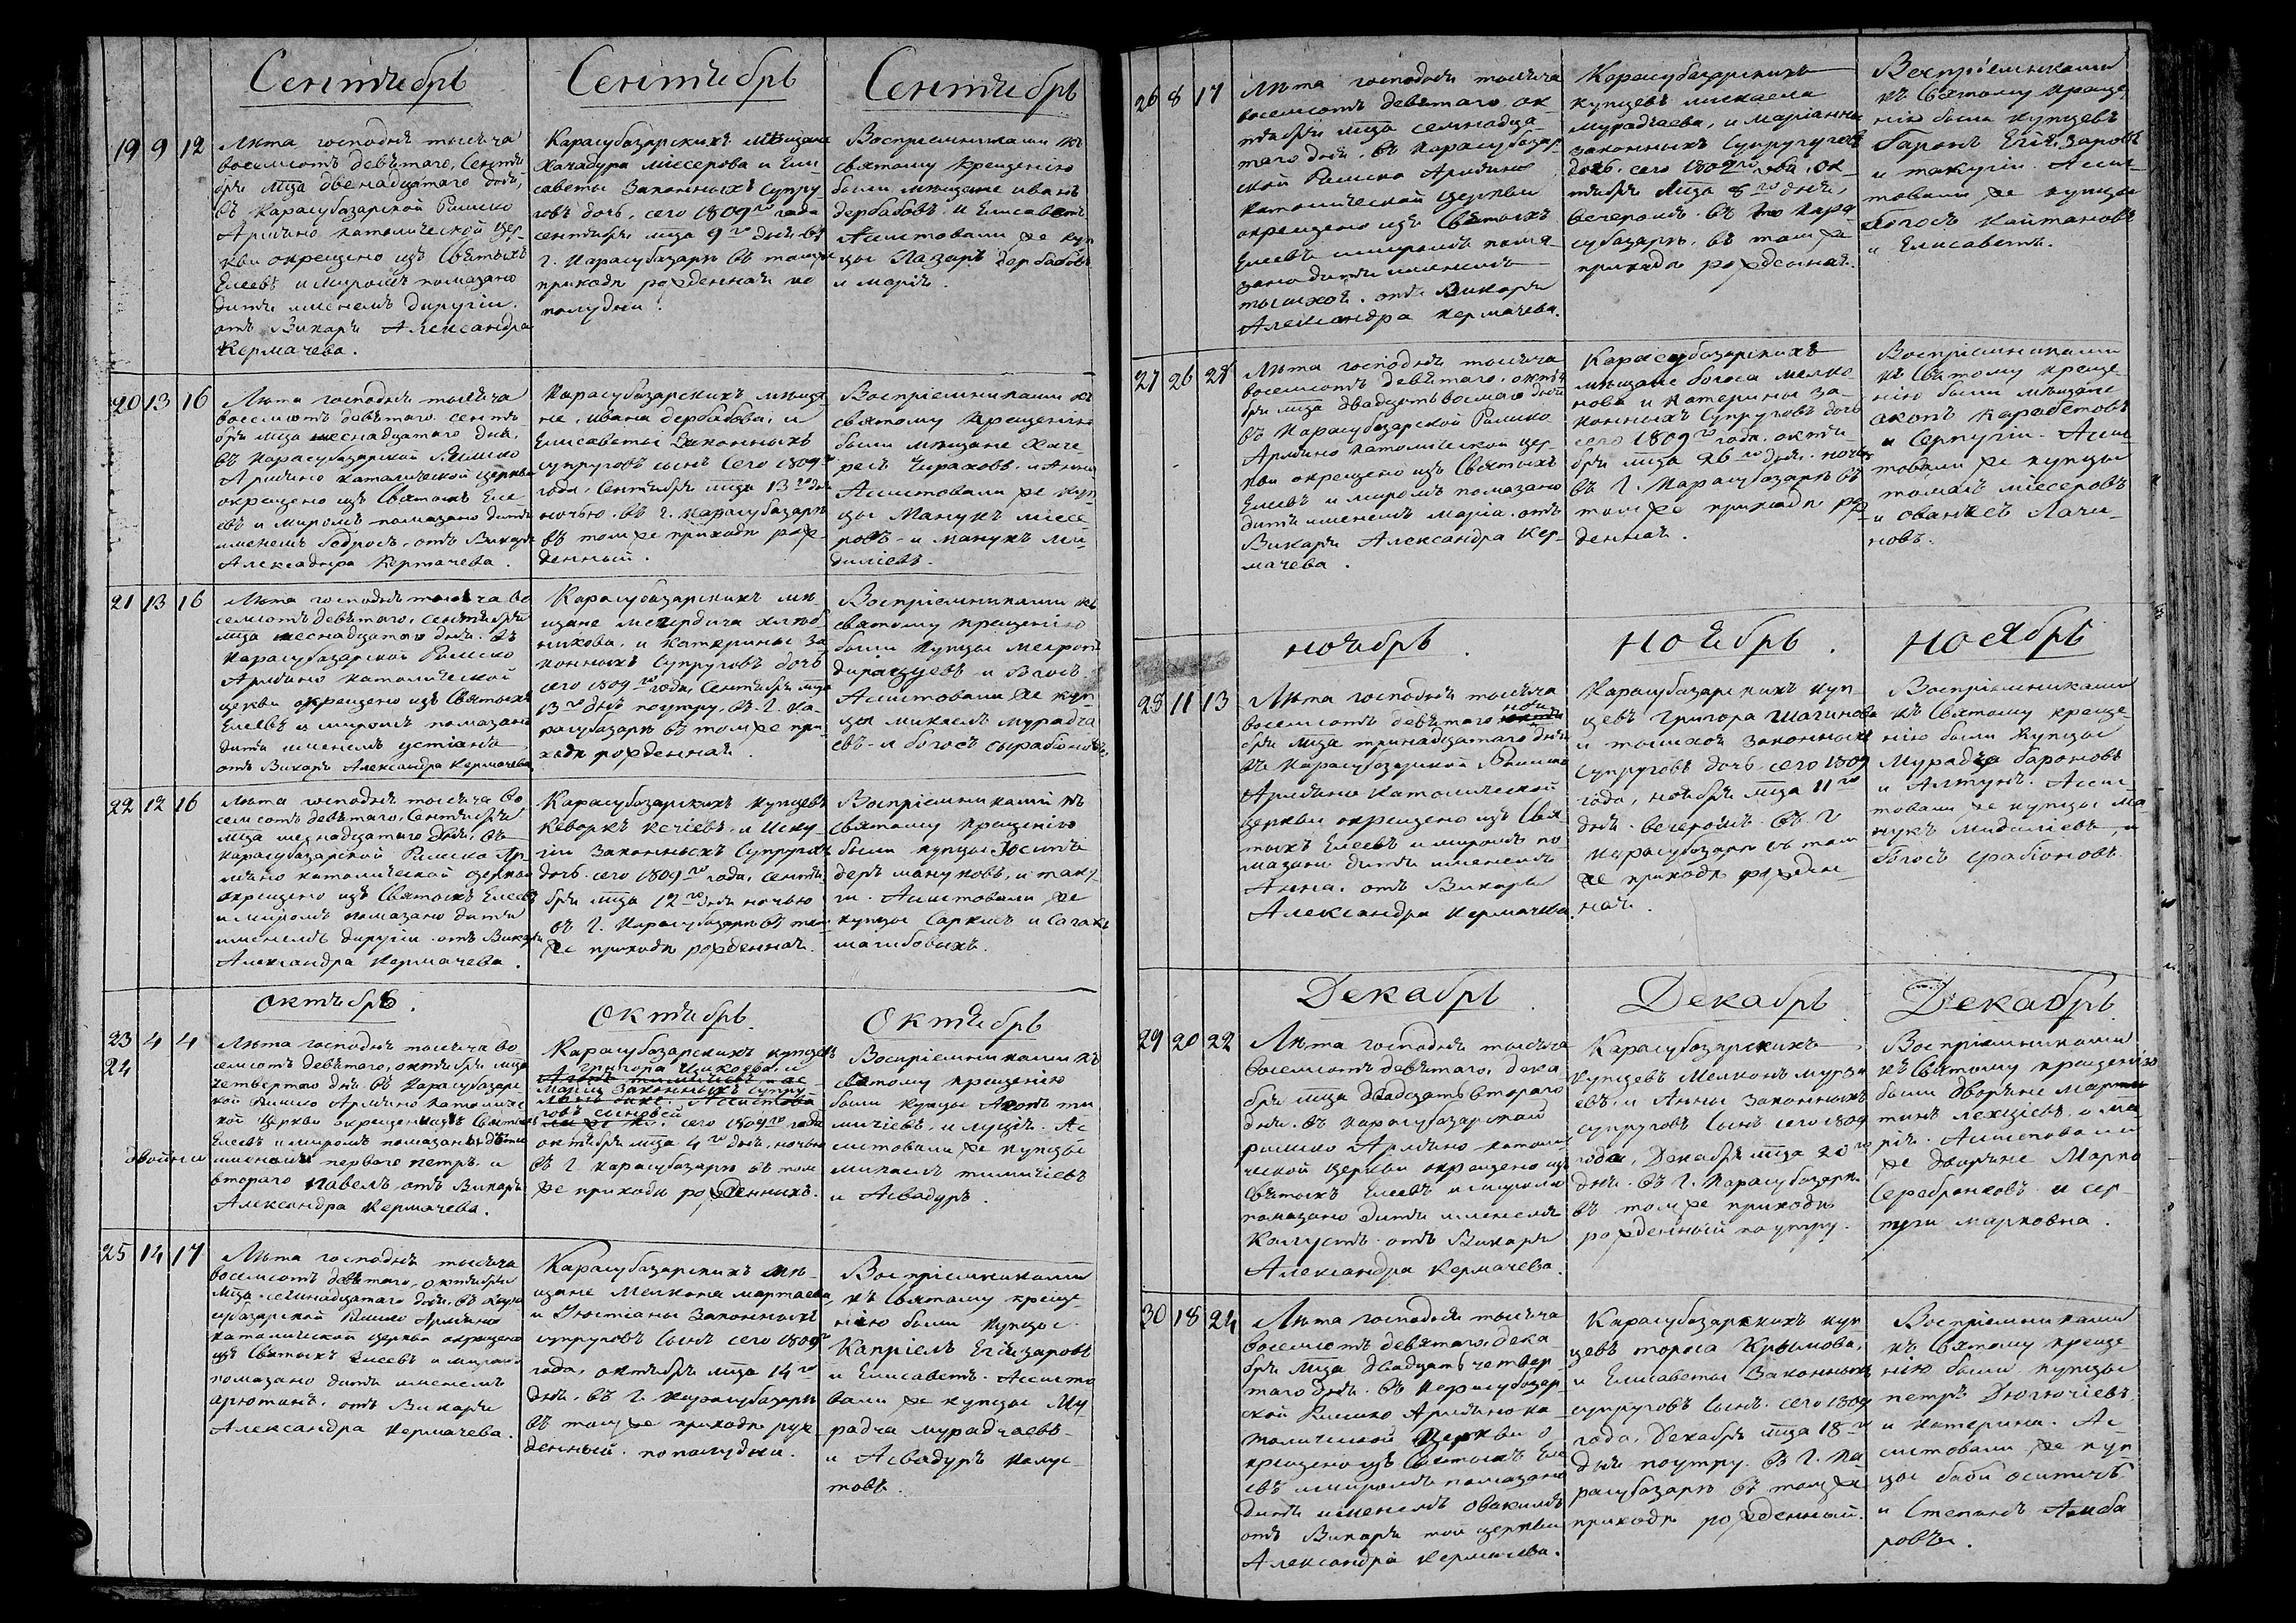 Сентябрь
19 9 12
Лѣта господня тысяча
восемсотъ девятаго, Сентя
бря мца двенадцатаго дня,
въ Карасубазарской Римско
Армяно католической цер
кви окрещено изъ Святыхъ
Елеевъ и миромъ помазано
дитя именемъ Диругiи.
отъ Викарiя Александра
Кермачева.
Сентябрь
Карасубазарскихъ мѣщане
Хачадура Мiесерова и Ели
саветы Законныхъ Супру
говъ дочь, сего 1809го года
сентября мца 9го дня въ
г. Карасубазарѣ въ томже
приходѣ рожденная по
полудни.
Сентябрь
Воспрiемниками къ
святому крещенiю
были мѣщане иванъ
дербабовъ и Елисаветъ
Асистовали же куп
цы Лазаръ дербабовъ
и марiя.
20 13 16
Лѣта господня тысяча
восемсотъ девятаго сентя
бря мца шеснадцатаго дня,
въ Карасубазарской Римско
Армяно католической церкви
окрещено изъ Святыхъ Еле
евъ и миромъ помазано дитя
именемъ бедросъ, отъ Викарiя
Александра Кермачева.
Карасубазарскихъ мѣща
не, ивана дербабова, и
Елисаветы Законныхъ
супруговъ сынъ сего 1809го
года, Сентября мца 13го дня
ночью. въ г. Карасубазарѣ
въ томже приходѣ рож
денный.
Воспрiемниками къ
святому крещенiю
были мѣщане
Чираховъ. и Анна
Асистовали же куп
цы Манукъ мiесе
ровъ и манукъ
21 13 16
Лѣта господня тысяча во
семсотъ девятаго, сентября
мца шеснадцатаго дня. въ
Карасубазарской Римско
Армяно католической
церкви окрещено изъ Святыхъ
Елеевъ и миромъ помазано
дитя именемъ устiана
отъ Викарiя Александра Кермачева
Карасубазарскихъ мѣ
щане мегердича хлѣб
никова, и Катерины за
конныхъ Супруговъ дочь
сего 1809го года, Сентября мца
13го дня поутру, въ г. Ка
расубазарѣ въ томже при
ходѣ рожденная.
Воспрiемниками къ
святому крещенiю
были купцы
Асистовали же куп
цы микаелъ мурадча
евъ и богосъ сырабiоновъ.
22 12 16
Лѣта господня тысяча во
семсотъ девятаго, Сентября
мца шеснадцатаго дня, въ
Карасубазарской Римско Ар
мяно католической церкви
окрещено изъ Святыхъ Елеевъ
и миромъ помазано дитя
именемъ диругiи отъ Викарiя
Александра Кермачева.
Карасубазарскихъ купцевъ
Кеворкъ кечiевъ, и
Законныхъ Супруговъ
дочь сего 1809го года, сентя
бря мца 12го дня ночью
въ г. Карасубазарѣ въ том
же приходѣ рожденная.
Воспрiемниками къ
святому крещенiю
были купцы Юсипъ
деръ мануковъ, и таку
ги. Асистовали же
купцы Саркисъ и Сагакъ
шагибовыхъ.
Октябрь.
23 4 4
24
двойни
Лѣта господня тысяча во
семсотъ девятаго, октября мца
четвертаго дня въ Карасубазарс
кой Римско Армяно католичес
кой церкви окрещены изъ Святыхъ
Елеевъ и миромъ помазаны дети
именами перваго петръ и
втораго павелъ отъ Викарiя
Александра Кермачева.
Октябрь
Карасубазарскихъ купцевъ
Григора и
Законныхъ супру
говъ сыновей
сего 1809го года
октября мца 4го дня, ночью
въ г. карасубазарѣ въ том
же приходѣ рожденныхъ.
Октябрь
Воспрiемниками къ
святому крещенiю
были купцы Акопъ ти
мичiевъ, и луцiя. Ас
систовали же купцы
микаелъ тимичiевъ
и Асвадуръ.
25 14 17
Лѣта господня тысяча
восемсотъ девятаго, октября
мца семнадцатаго дня, въ Кара
субазарской Римско Армяно
католической церкви окрещено
изъ Святыхъ Елеевъ и миромъ
помазано дитя именемъ
арютинъ. отъ Викарiя
Александра Кермачева.
Карасубазарскихъ мѣ
щане Мелкона мартаева
и Юстiаны Законныхъ
супруговъ сынъ сего 1809го
года, октября мца 14го
дня, въ г. Карасубазарѣ
въ томже приходѣ рож
денный. пополудни.
Воспрiемниками
къ святому креще
нiю были купцы
Каприелъ Егiязаровъ
и Елисаветъ. Ассисто
вали же купцы Му
радча мурадчаевъ
и Асвадуръ калус
товъ.
26 8 17
Лѣта господня тысяча
восемсотъ девятаго. ок
тября мца семнадца
таго дня. въ Карасубазар
ской Римско Армяно
католической церкви
окрещено изъ Святыхъ
Елеевъ миромъ пома
зано дитя именемъ
тышхоя. отъ Викарiя
Александра Кермачева.
Карасубазарскихъ
купцевъ микаела
мурадчаева, и марiанны
законныхъ Супруговъ
дочь. сего 1809го года. ок
тября мца 8го дня,
вечеромъ. въ г. Кара
субазарѣ, въ томже
приходѣ рожденная.
Воспрiемниками
къ святому креще
нiю были купцевъ
Гаронъ Егiязаровъ
и такугiи. Асис
товали же купцы
Богосъ Кайтановъ
и Елисаветъ.
27 26 28
Лѣта господня тысяча
восемсотъ девятаго. октя
бря мца двадцать восмаго дня
въ Карасубазарской Римско
Армяно католической цер
кви окрещено изъ Святыхъ
Елеевъ и миромъ помазано
дитя именемъ марiа. отъ
Викарiя Александра Кер
мачева.
Карасубазарскихъ
мѣщане богоса мелко
нова и Катерины за
конныхъ Супруговъ дочь
сего 1809го года. октя
бря мца 26го дня. ночью
въ г. Карасубазарѣ въ
томже приходѣ рож
денная.
Воспрiемниками
къ святому креще
нiю были мѣщане
акопъ карабетовъ
и Серпугiи. Асис
товали же купцы
томасъ мiесеровъ
и ованесъ Лачи
новъ.
ноябрь.
28 11 13
Лѣта господня тысяча
восемсотъ девятаго ноя
бря мца тринадцатаго дня
въ Карасубазарской Римско
Армяно католической
церкви окрещено изъ Свя
тыхъ Елеевъ и миромъ по
мазано дитя именемъ
Анна. отъ Викарiя
Александра Кермачева.
ноябрь.
Карасубазарскихъ куп
цевъ Григора Шагинова
и тышхои Законныхъ
Супруговъ дочь сего 1809
года, ноября мца 11го
дня. вечеромъ. въ г.
Карасубазарѣ въ том
же приходѣ рожден
ная.
ноябрь
Воспрiемниками
къ Святому креще
нiю были купцы
Мурадча бароновъ
и Алтунъ. Асис
товали же купцы ма
нукъ мидилiевъ и
Богосъ срабiоновъ.
Декабрь
29 20 22
Лѣта господня тысяча
восемсотъ девятаго, дека
бря мца двадцать втораго
дня. въ Карасубазарской
римско Армяно католи
ческой церкви окрещено изъ
Святыхъ Елеевъ и миромъ
помазано дитя именемъ
Калустъ отъ Викарiя
Александра Кермачева.
Декабрь
Карасубазарскихъ
купцевъ Мелконъ
и Анны Законныхъ
супруговъ сынъ сего 1809
года, Декабря мца 20го
дня. въ г. Карасубазарѣ
въ томже приходѣ
рожденный поутру.
Декабрь
Воспрiемниками
къ Святому крещенiю
были дворяне Мар
тинъ лехцiевъ и ма
рiя. Асистовали
же дворяне Марко
Серебряковъ и сер
пуги марковна.
30 18 24
Лѣта господня тысяча
восемсотъ девятаго, дека
бря мца двадцать четвер
таго дня. въ Карасубазар
ской Римско Армяно ка
толической Церкви о
крещено изъ Святыхъ Еле
евъ и миромъ помазано
дитя именемъ овакимъ
отъ Викарiя той церкви
Александра Кермачева.
Карасубазарскихъ куп
цевъ тороса Крымова,
и Елисаветы Законныхъ
супруговъ сынъ. сего 1809
года, Декабря мца 18го
дня поутру. въ г. Ка
расубазарѣ въ томже
приходѣ рожденный.
Воспрiемниками
къ Святому креще
нiю были купцы
петръ Дюлючiевъ,
и катерина. Ас
систовали же куп
цы баби осипичъ
и Степанъ Амба
ровъ.